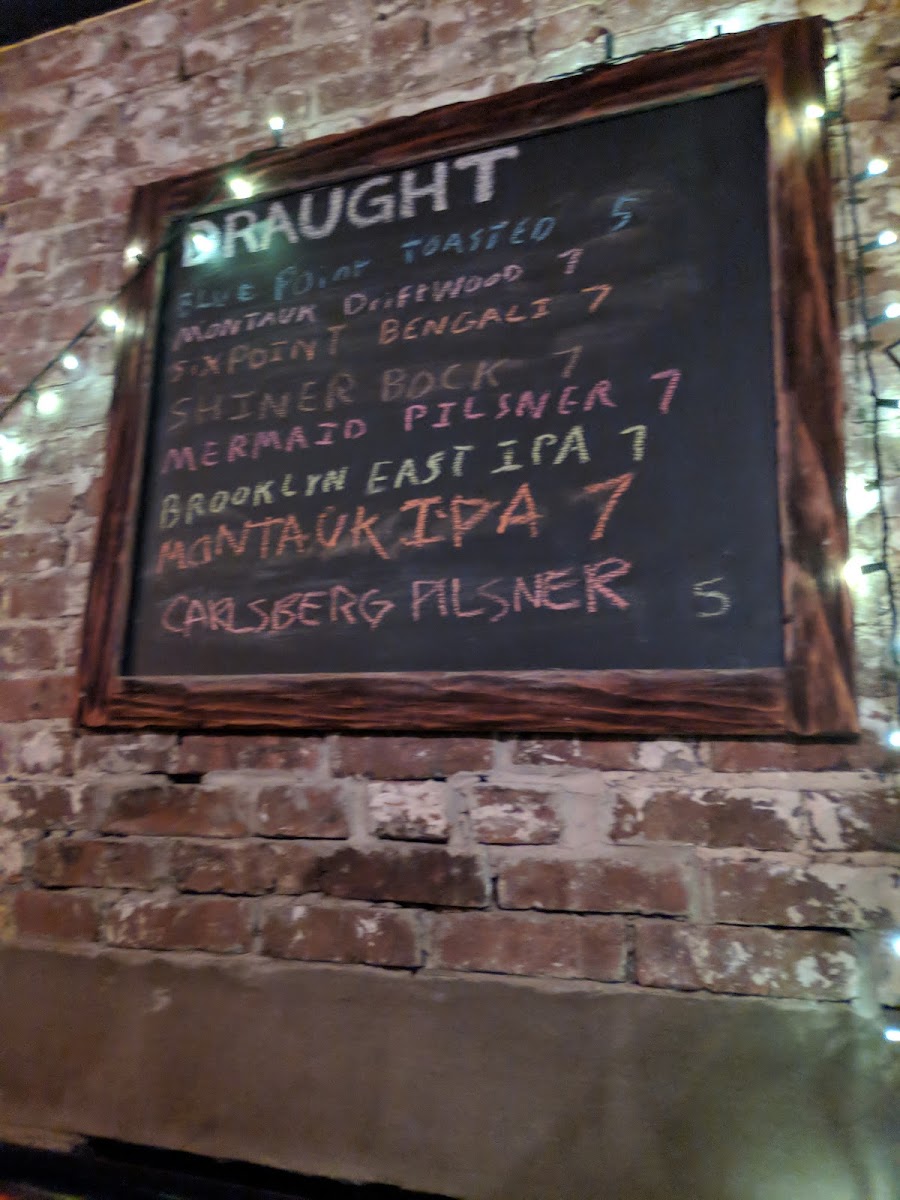 DRAUGHT
BLUE POINT TOASTED 5
MONTAUK DRiFtWOOD 7
SIXPOINT BENGALI 7
SHINER BOCK 7
MERMAID PILSNER 7
BROOKLYN EAST IPA 7
MONTAUK IPA 7
CARLSBERG PILSNER 5